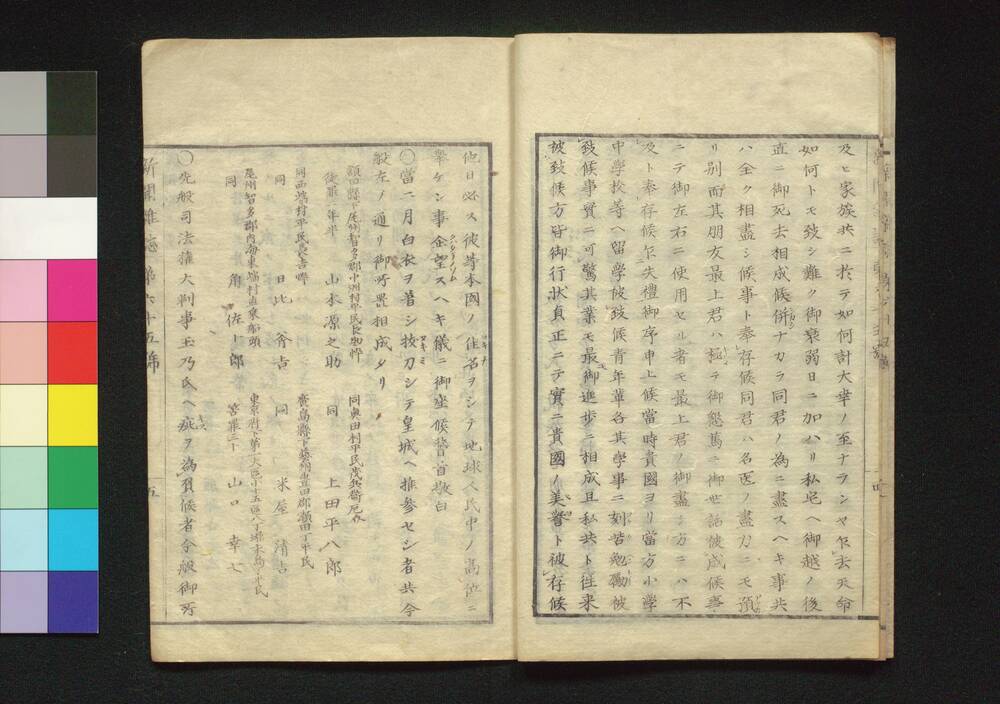 及ヒ家族共ニ於テ如何計大幸ノ至ナランヤ乍去天命
如何トモ致シ難ク御衰弱日ニ加ハリ私宅ヘ御越ノ後
直ニ御死去相成候併ナカラ同君ノ為ニ盡スヘキ事共
ハ全ク相盡シ候事ト奉存候同君ハ名医ノ盡力ニモ預
リ別而其朋友最上君ハ極テ御懇篤ニ御世話被成候事
ニテ御左右ニ使用セル者モ最上君ノ御盡シ方ニハ不
及ト奉存候乍失禮御序申上候當時貴國ヨリ當方小學
中學校等ヘ留學被致候青年輩各其學事ニ刻苦勉勵被
致候事實ニ可驚其業モ最御進歩ニ相成且私共ト往来
被致候方皆御行状貞正ニテ實ニ貴國ノ美譽ト被存候
他日必ス彼等本國ノ佳名ヲシテ地球人民中ノ高位ニ
擧ケン事企望スヘキ儀ニ御座候稽首敬白
〇當二月白衣ヲ着シ抜刀シテ皇城ヘ推参セシ者共今
般左ノ通リ御所置相成タリ
額田縣下尾州智多郡中洲村平民長物忰
徒罪一年半 山本源之助
同奥田村平民茂兵衞厄介
同 上田平八郎
同西端村平民長吉忰
同 日比 斧吉
廣島縣下藝州豊田郡瀬田丁平民
同 米屋 清吉
尾州智多郡内海東端村直乗船頭
同 角 佐十郎
東京府下第一大區小十五區八丁堀末為平民
笞罪三十 山口 幸七
〇先般司法権大判事玉乃氏ヘ疵ヲ為負候者今般御所
新聞雜誌第六十五號 五